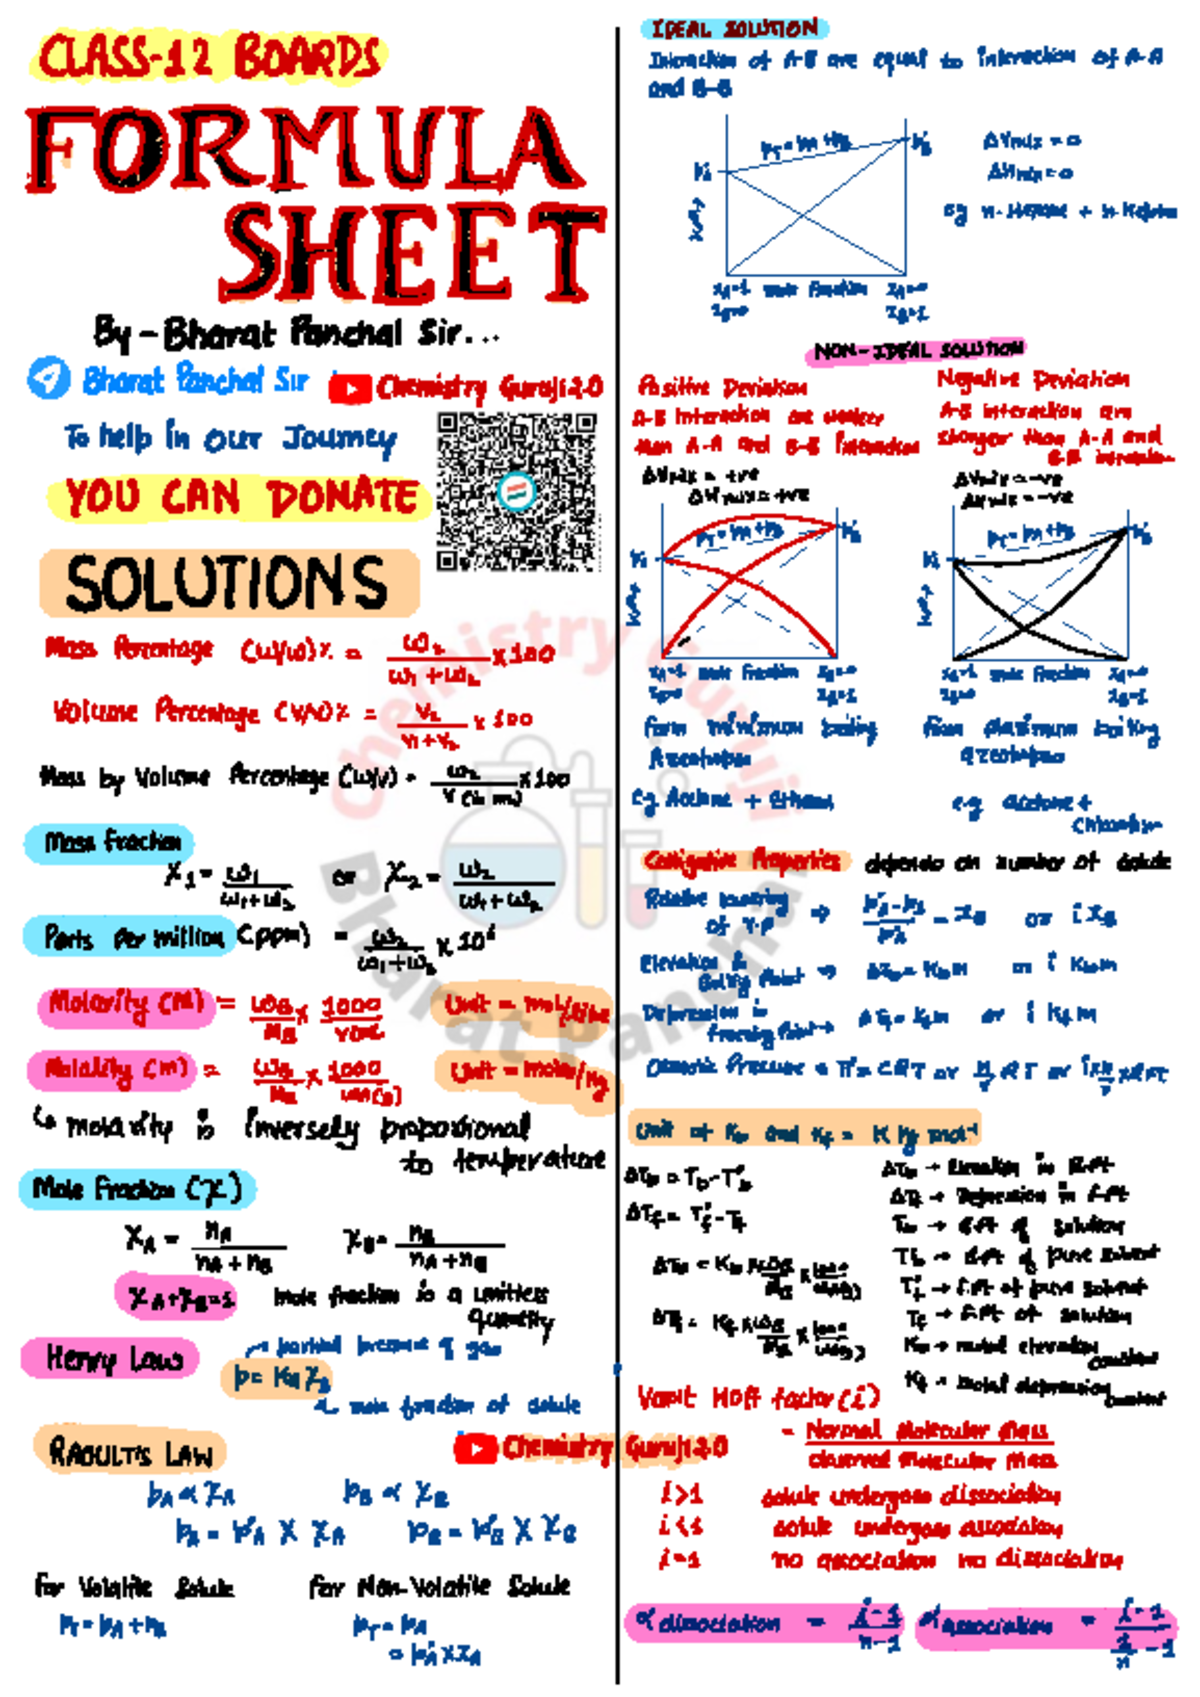 CLASS-12 BOARDS
FORMULA
SHEET
By - Bharat Panchal Sir...
Bharat Panchal Sir
Chemistry Guruji 2.0
To help in our Journey
YOU CAN DONATE
SOLUTIONS
Mass Percentage (w/w)% = w₂/(w₁+w₂) × 100
Volume Percentage (v/v)% = v₂/(v₁+v₂) × 100
Mass by Volume Percentage (w/v) = w₂/V (in mL) × 100
Mass fraction
x₁ = w₁/(w₁+w₂) or x₂ = w₂/(w₁+w₂)
Parts per million (ppm) = w₂/(w₁+w₂) × 10⁶
Molarity (M) = w_B/M_B × 1000/V(mL) Unit = mol/litre
Molality (m) = w_B/M_B × 1000/w_A(g) Unit = moles/kg
↳ molarity is inversely proportional
to temperature
Mole Fraction (χ)
χ_A = n_A/(n_A + n_B) χ_B = n_B/(n_A + n_B)
χ_A + χ_B = 1 mole fraction is a unitless
quantity
Henry Law
partial pressure of gas
p = K_H χ_B
mole fraction of solute
RAOULT'S LAW
p_A ∝ χ_A p_B ∝ χ_B
p_A = p°_A × χ_A p_B = p°_B × χ_B
for Volatile Solute for Non-Volatile Solute
p_T = p_A + p_B p_T = p_A
= p°_A × χ_A
Chemistry Guruji 2.0
IDEAL SOLUTION
Interaction of A-B are equal to interaction of A-A
and B-B
p_T = p_A + p_B
p°_A
p°_B
V.P
ΔVmix = 0
ΔHmix = 0
eg n-Hexane + n-Heptane
x_A=1 mole fraction x_A=0
x_B=0 x_B=1
NON-IDEAL SOLUTION
Positive Deviation
A-B Interaction are weaker
than A-A and B-B Interaction
ΔVmix = +ve
ΔHmix = +ve
p_T = p_A + p_B
p°_A
p°_B
V.P
x_A=1 mole fraction x_A=0
x_B=0 x_B=1
form minimum boiling
Azeotropes
eg Acetone + Ethanol
Negative Deviation
A-B interaction are
stronger than A-A and
B-B interaction
ΔVmix = -ve
ΔHmix = -ve
p_T = p_A + p_B
p°_A
p°_B
V.P
x_A=1 mole fraction x_A=0
x_B=0 x_B=1
form maximum boiling
azeotropes
e.g acetone +
Chloroform
Colligative Properties depends on number of solute
Relative lowering
of V.P ⇒ (p°_A - p_A)/p°_A = x_B or i x_B
Elevation in
Boiling Point ⇒ ΔT_b = K_b m or i K_b m
Depression in
freezing Point → ΔT_f = K_f m or i K_f m
Osmotic Pressure = π = CRT or n/V RT or i × n/V × RT
Unit of K_b and K_f = K kg mol⁻¹
ΔT_b = T_b - T°_b
ΔT_f = T°_f - T_f
ΔT_b = K_b × w_B/M_B × 1000/w_A(g)
ΔT_f = K_f × w_B/M_B × 1000/w_A(g)
ΔT_b → Elevation in B.Pt
ΔT_f → Depression in f.Pt
T_b → B.Pt of solution
T°_b → B.Pt of pure solvent
T°_f → f.Pt of pure solvent
T_f → f.Pt of solution
K_b → molal elevation
constant
K_f → molal depression
constant
Vant Hoff factor (i)
= Normal Molecular Mass
observed Molecular Mass
i > 1 solute undergoes dissociation
i < 1 solute undergoes association
i = 1 no association no dissociation
α dissociation = (i-1)/(n-1) α association = (i-1)/(1/n - 1)
Chemistry Guruji
Bharat Panchal